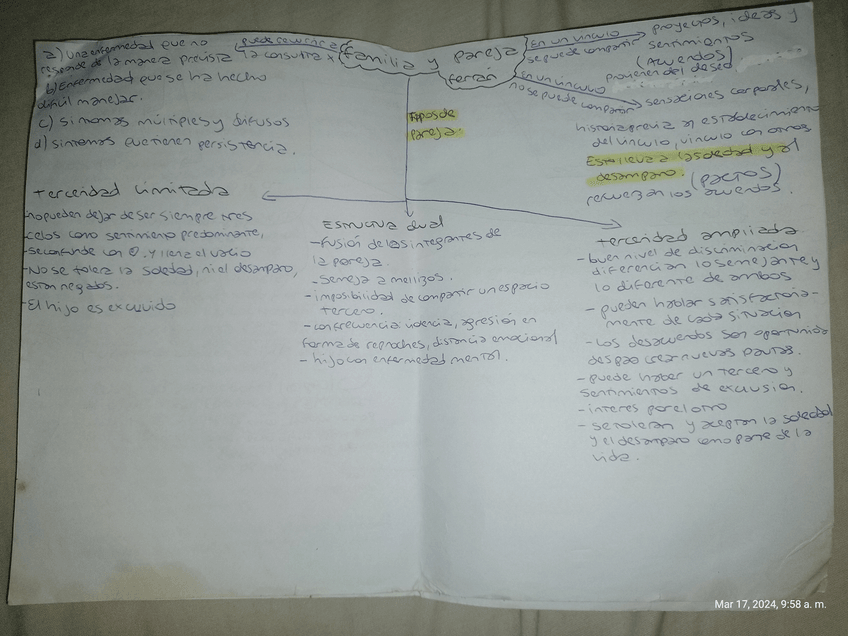 familia y pareja
ferran
puede recurrir a
la consulta x
a) una enfermedad que no
responde de la manera prevista
b) Enfermedad que se ha hecho
dificil manejar.
c) sintomas múltiples y difusos
d) sintomas que tienen persistencia.
En un vinculo
se puede compartir
proyectos, ideas y
sentimientos
(Acuerdos)
provienen del deseo
en un vinculo
no se puede compartir
sensaciones corporales,
historia previa al establecimiento
del vinculo, vinculo con otros
Esto lleva a la soledad y al
desamparo. (PACTOS)
refuerzan los acuerdos.
Tipos de
pareja.
terceridad limitada
-no pueden dejar de ser siempre tres
-celos como sentimiento predominante,
-se confunde con y llena el vacio
-No se tolera la soledad, ni el desamparo,
estan negados.
-El hijo es excluido
Estructura dual
-fusión de los integrantes de
la pareja.
-semeja a mellizos.
-imposibilidad de compartir un espacio
tercero.
-con frecuencia violencia, agresión en
forma de reproches, distancia emocional
- hijo con enfermedad mental.
terceridad ampliada
- buen nivel de discriminación
diferencian lo semejante y
lo diferente de ambos
- pueden hablar satisfactoria-
mente de cada situación
-Los desacuerdos son oportunida
des para crear nuevas pautas.
-puede haber un tercero y
sentimientos de exclusión.
-interes por el otro
- se toleran y aceptan la soledad
y el desamparo como parte de la
vida.
Mar 17, 2024, 9:58 a. m.